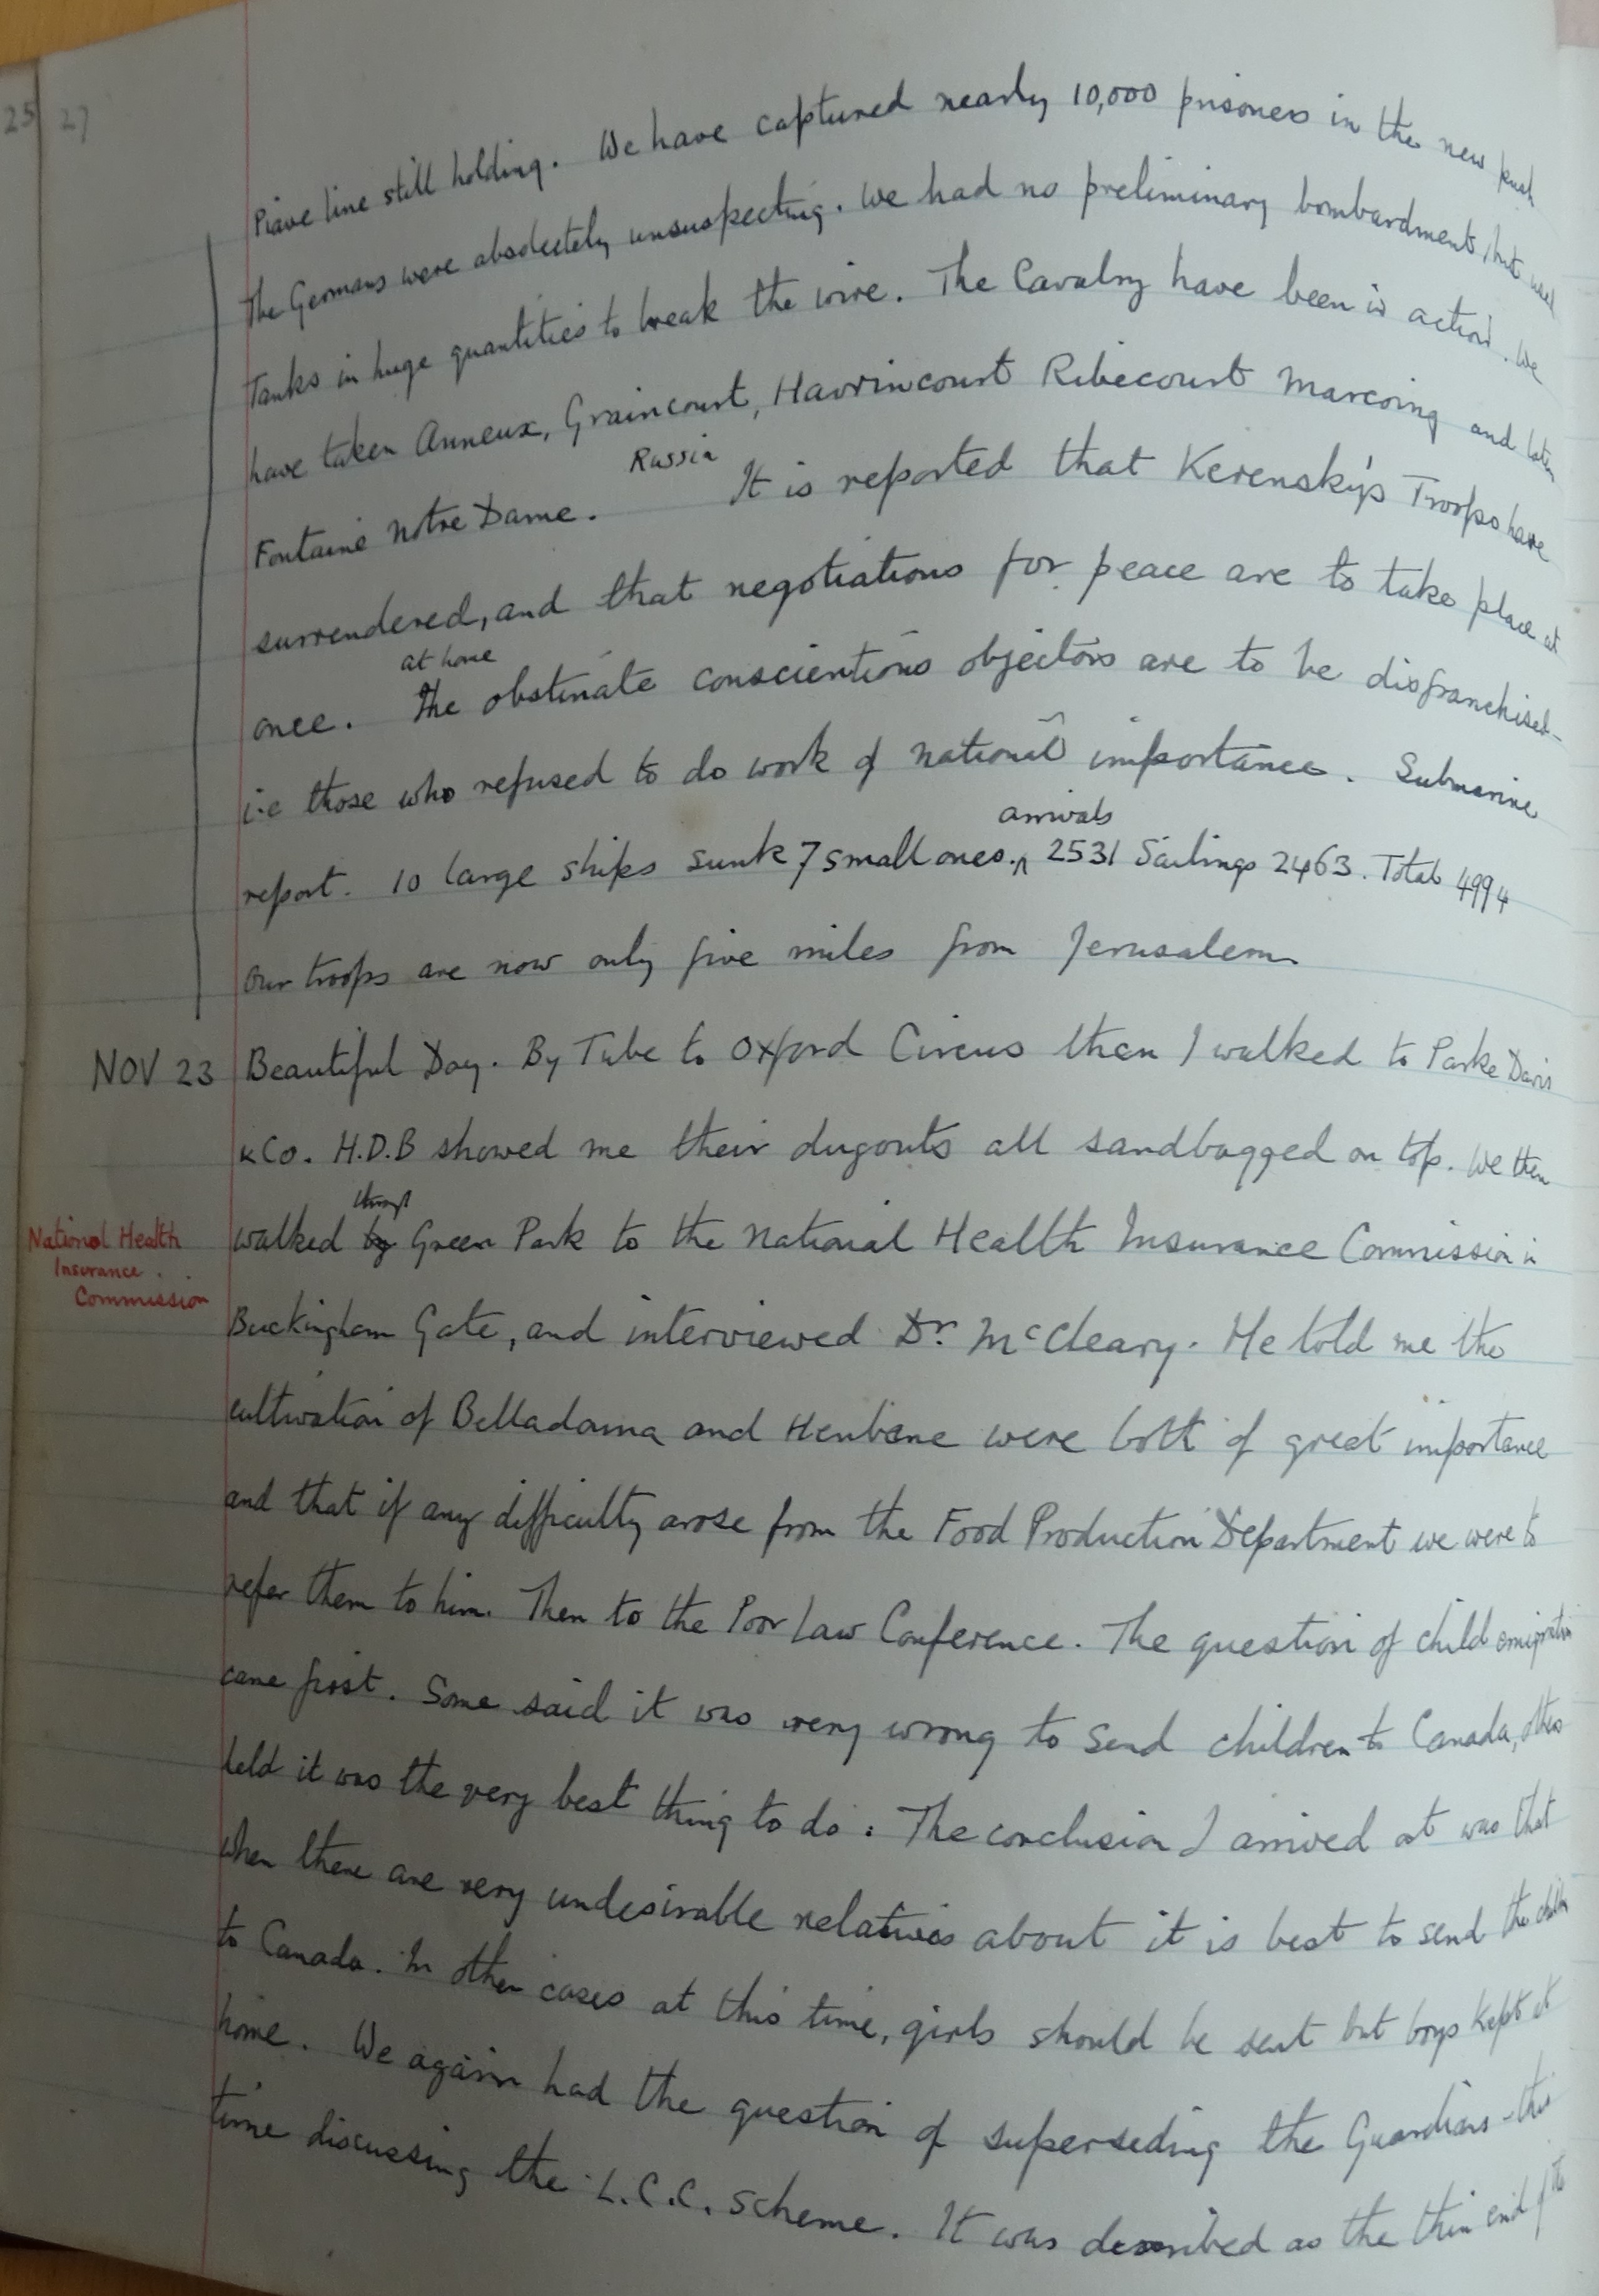 25 27
Piave line still holding. We have captured nearly 10,000 prisoners in the new push
The Germans were absolutely unsuspecting. We had no preliminary bombardment, but used
Tanks in huge quantities to break the wire. The Cavalry have been in action. We
have taken Anneux, Graincourt, Havrincourt Ribecourt Marcoing and later
Fontaine Notre Dame. Russia It is reported that Kerensky's Troops have
surrendered, and that negotiations for peace are to take place at
once. at home The obstinate conscientious objectors are to be disfranchised -
i.e those who refused to do work of national importance. Submarine
report. 10 large ships sunk 7 small ones. arrivals 2531 Sailings 2463. Total 4994
Our troops are now only five miles from Jerusalem
NOV 23 Beautiful Day. By Tube to Oxford Circus then I walked to Parke Davis
& Co. H.D.B showed me their dugouts all sandbagged on top. We then
walked by through Green Park to the National Health Insurance Commission in
National Health
Insurance.
Commission
Buckingham Gate, and interviewed Dr. McCleary. He told me the
cultivation of Belladonna and Henbane were both of great importance
and that if any difficulty arose from the Food Production Department we were to
refer them to him. Then to the Poor Law Conference. The question of child emigration
came first. Some said it was very wrong to send children to Canada, others
held it was the very best thing to do. The conclusion I arrived at was that
when there are very undesirable relatives about it is best to send the children
to Canada. In other cases at this time, girls should be sent but boys kept at
home. We again had the question of superseding the Guardians - this
time discussing the L.C.C. scheme. It was described as the thin end of the